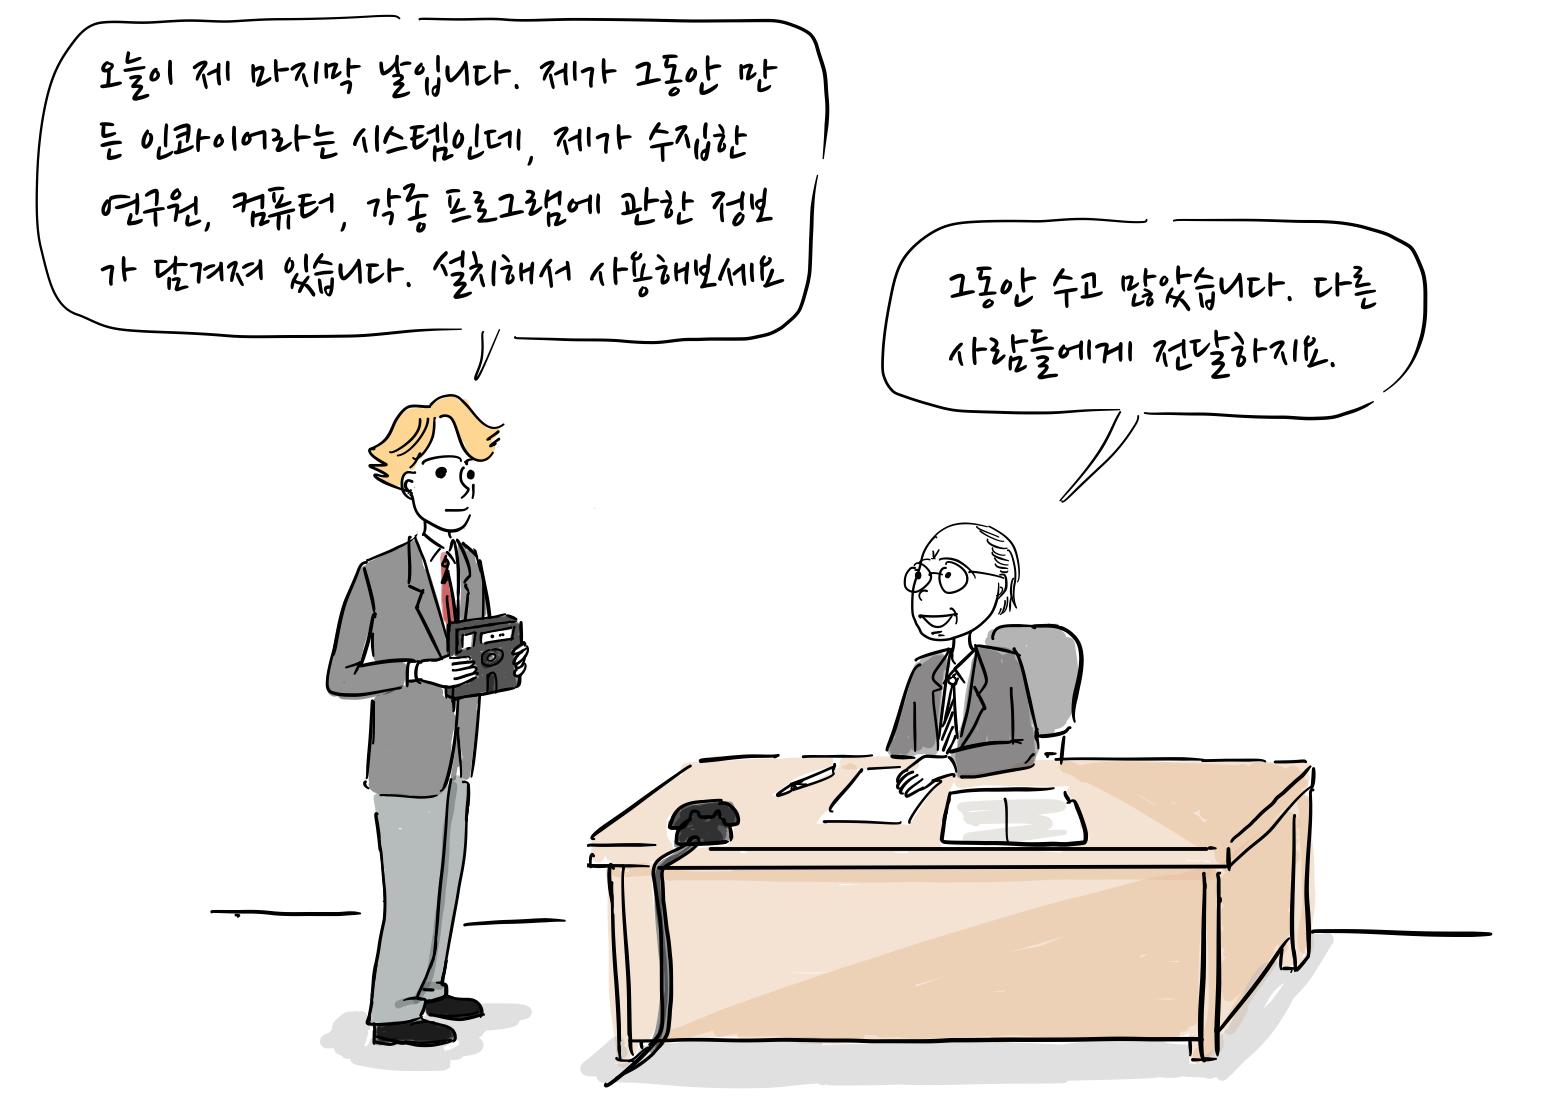 오늘이 제 마지막 날입니다. 제가 그동안 만
든 인콰이어라는 시스템인데, 제가 수집한
연구원, 컴퓨터, 각종 프로그램에 관한 정보
가 담겨져 있습니다. 설치해서 사용해보세요
그동안 수고 많았습니다. 다른
사람들에게 전달하지요.